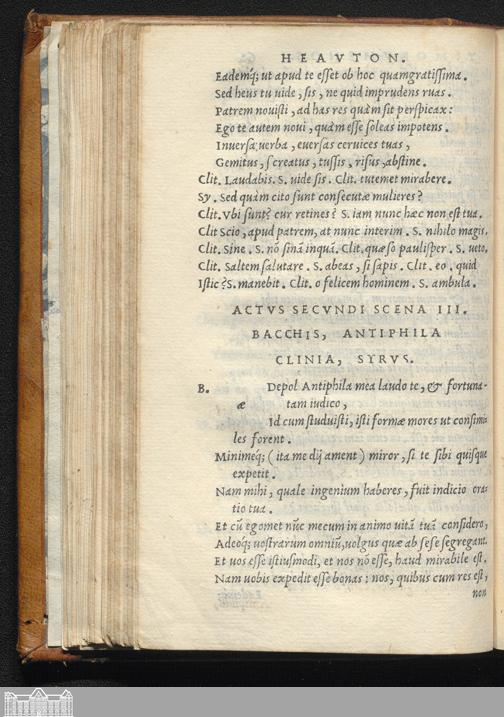 HEAVTON.
Eademq́; ut apud te esset ob hoc quamgratissima.
Sed heus tu uide, sis, ne quid imprudens ruas.
Patrem nouisti, ad has res quàm sit perspicax:
Ego te autem noui, quàm esse soleas impotens.
Inuersa, uerba, euersas ceruices tuas,
Gemitus, screatus, tussis, risus, abstine.
Clit. Laudabis. S. uide sis. Clit. tutemet mirabere.
Sy. Sed quàm cito sunt consecutæ mulieres?
Clit. Vbi sunt? cur retines? S. iam nunc hæc non est tua.
Clit Scio, apud patrem, at nunc interim. S. nihilo magis.
Clit. Sine. S. nō sinā inquā. Clit. quæso paulisper. S. ueto.
Clit. Saltem salutare. S. abeas, si sapis. Clit. eo. quid
Istic? S. manebit. Clit. o felicem hominem. S. ambula.
ACTVS SECVNDI SCENA III.
BACCHIS, ANTIPHILA
CLINIA, SYRVS.
B. Depol Antiphila mea laudo te, & fortuna-
æ tam iudico,
Id cum studuisti, isti formæ mores ut consimi
les forent.
Minimeq́; (ita me dij ament) miror, si te sibi quisque
expetit.
Nam mihi, quale ingenium haberes, fuit indicio ora
tio tua.
Et cū egomet nūc mecum in animo uitā tuā considero,
Adeoq́; uostrarum omniū, uolgus quæ ab sese segregant.
Et uos esse istiusmodi, et nos nō esse, haud mirabile est.
Nam uobis expedit esse bonas: nos, quibus cum res est,
non